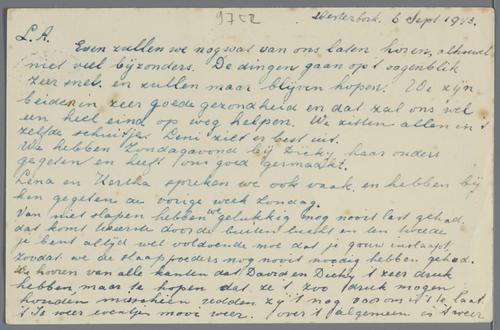 9752
Westerbork. 6 Sept 1943.
L.A.
Even zullen we nog wat van ons laten horen, alhoewel
niet veel bijzonders. De dingen gaan op't oogenblik
zeer snel. en zullen maar blijven hopen. We zijn
beiden in zeer goede gezondheid en dat zal ons wel
een heel eind op weg helpen. We zitten allen in 't
zelfde schuitje. Leni ziet er best uit.
We hebben Zondagavond bij haar ouders
gegeten en heeft ons goed gesmaakt.
Lena en spreken we ook vaak en hebben bij
hen gegeten de vorige week Zondag.
Van niet slapen hebben we gelukkig nog nooit last gehad.
dat komt teneerste door de buitenlucht en ten tweede
je bent altijd wel voldoende moe dat je gouw inslaapt
zoodat we de slaappoeders nog nooit noodig hebben gehad.
We hooren van alle kanten dat David en Dicky 't zeer druk
hebben, maar te hopen dat ze 't zoo druk mogen
houden misschien redden zij 't nog voor om 't te laat
't Is weer eventjes mooi weer. over't algemeen is 't weer